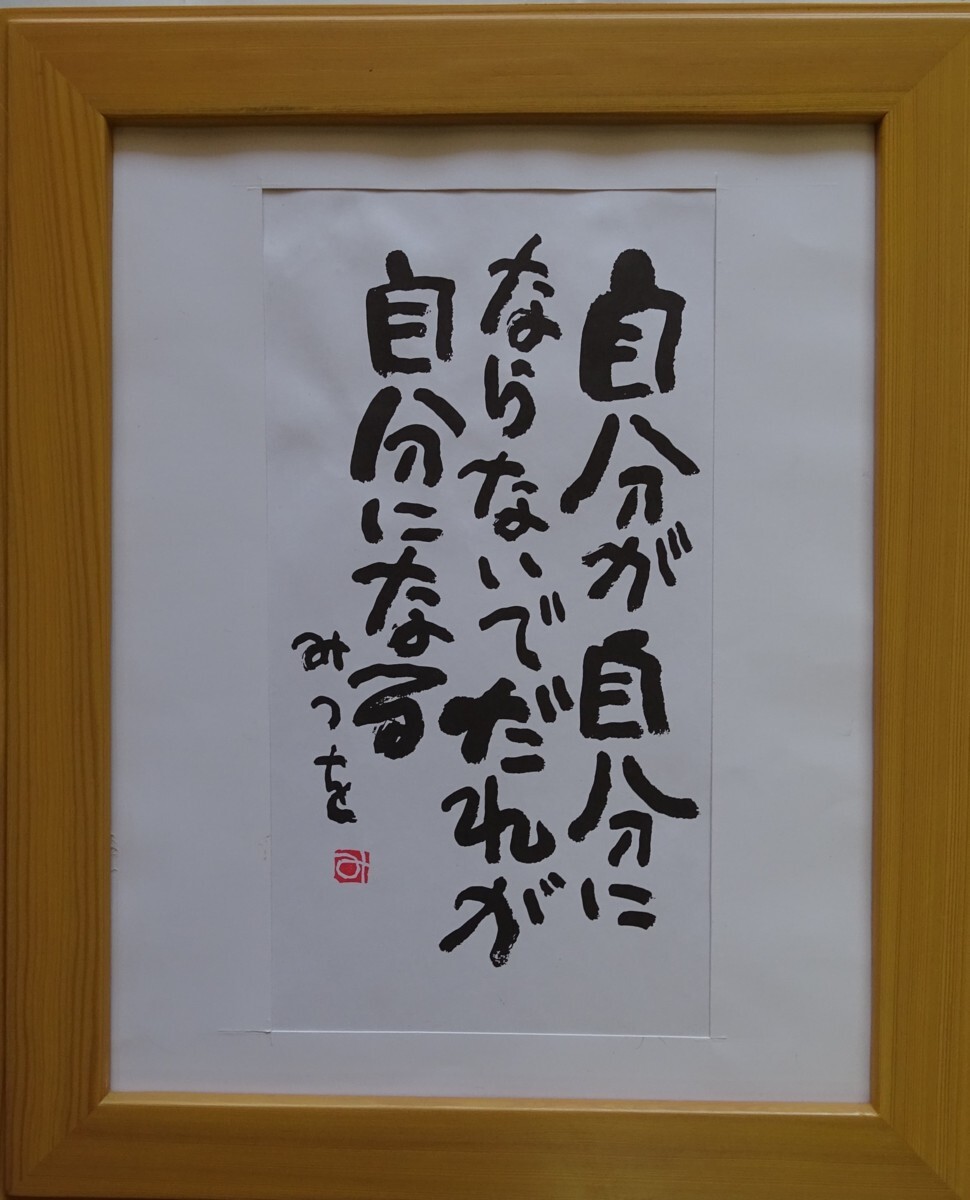 自分が自分に
ならないでだれが
自分になる
みつを
み